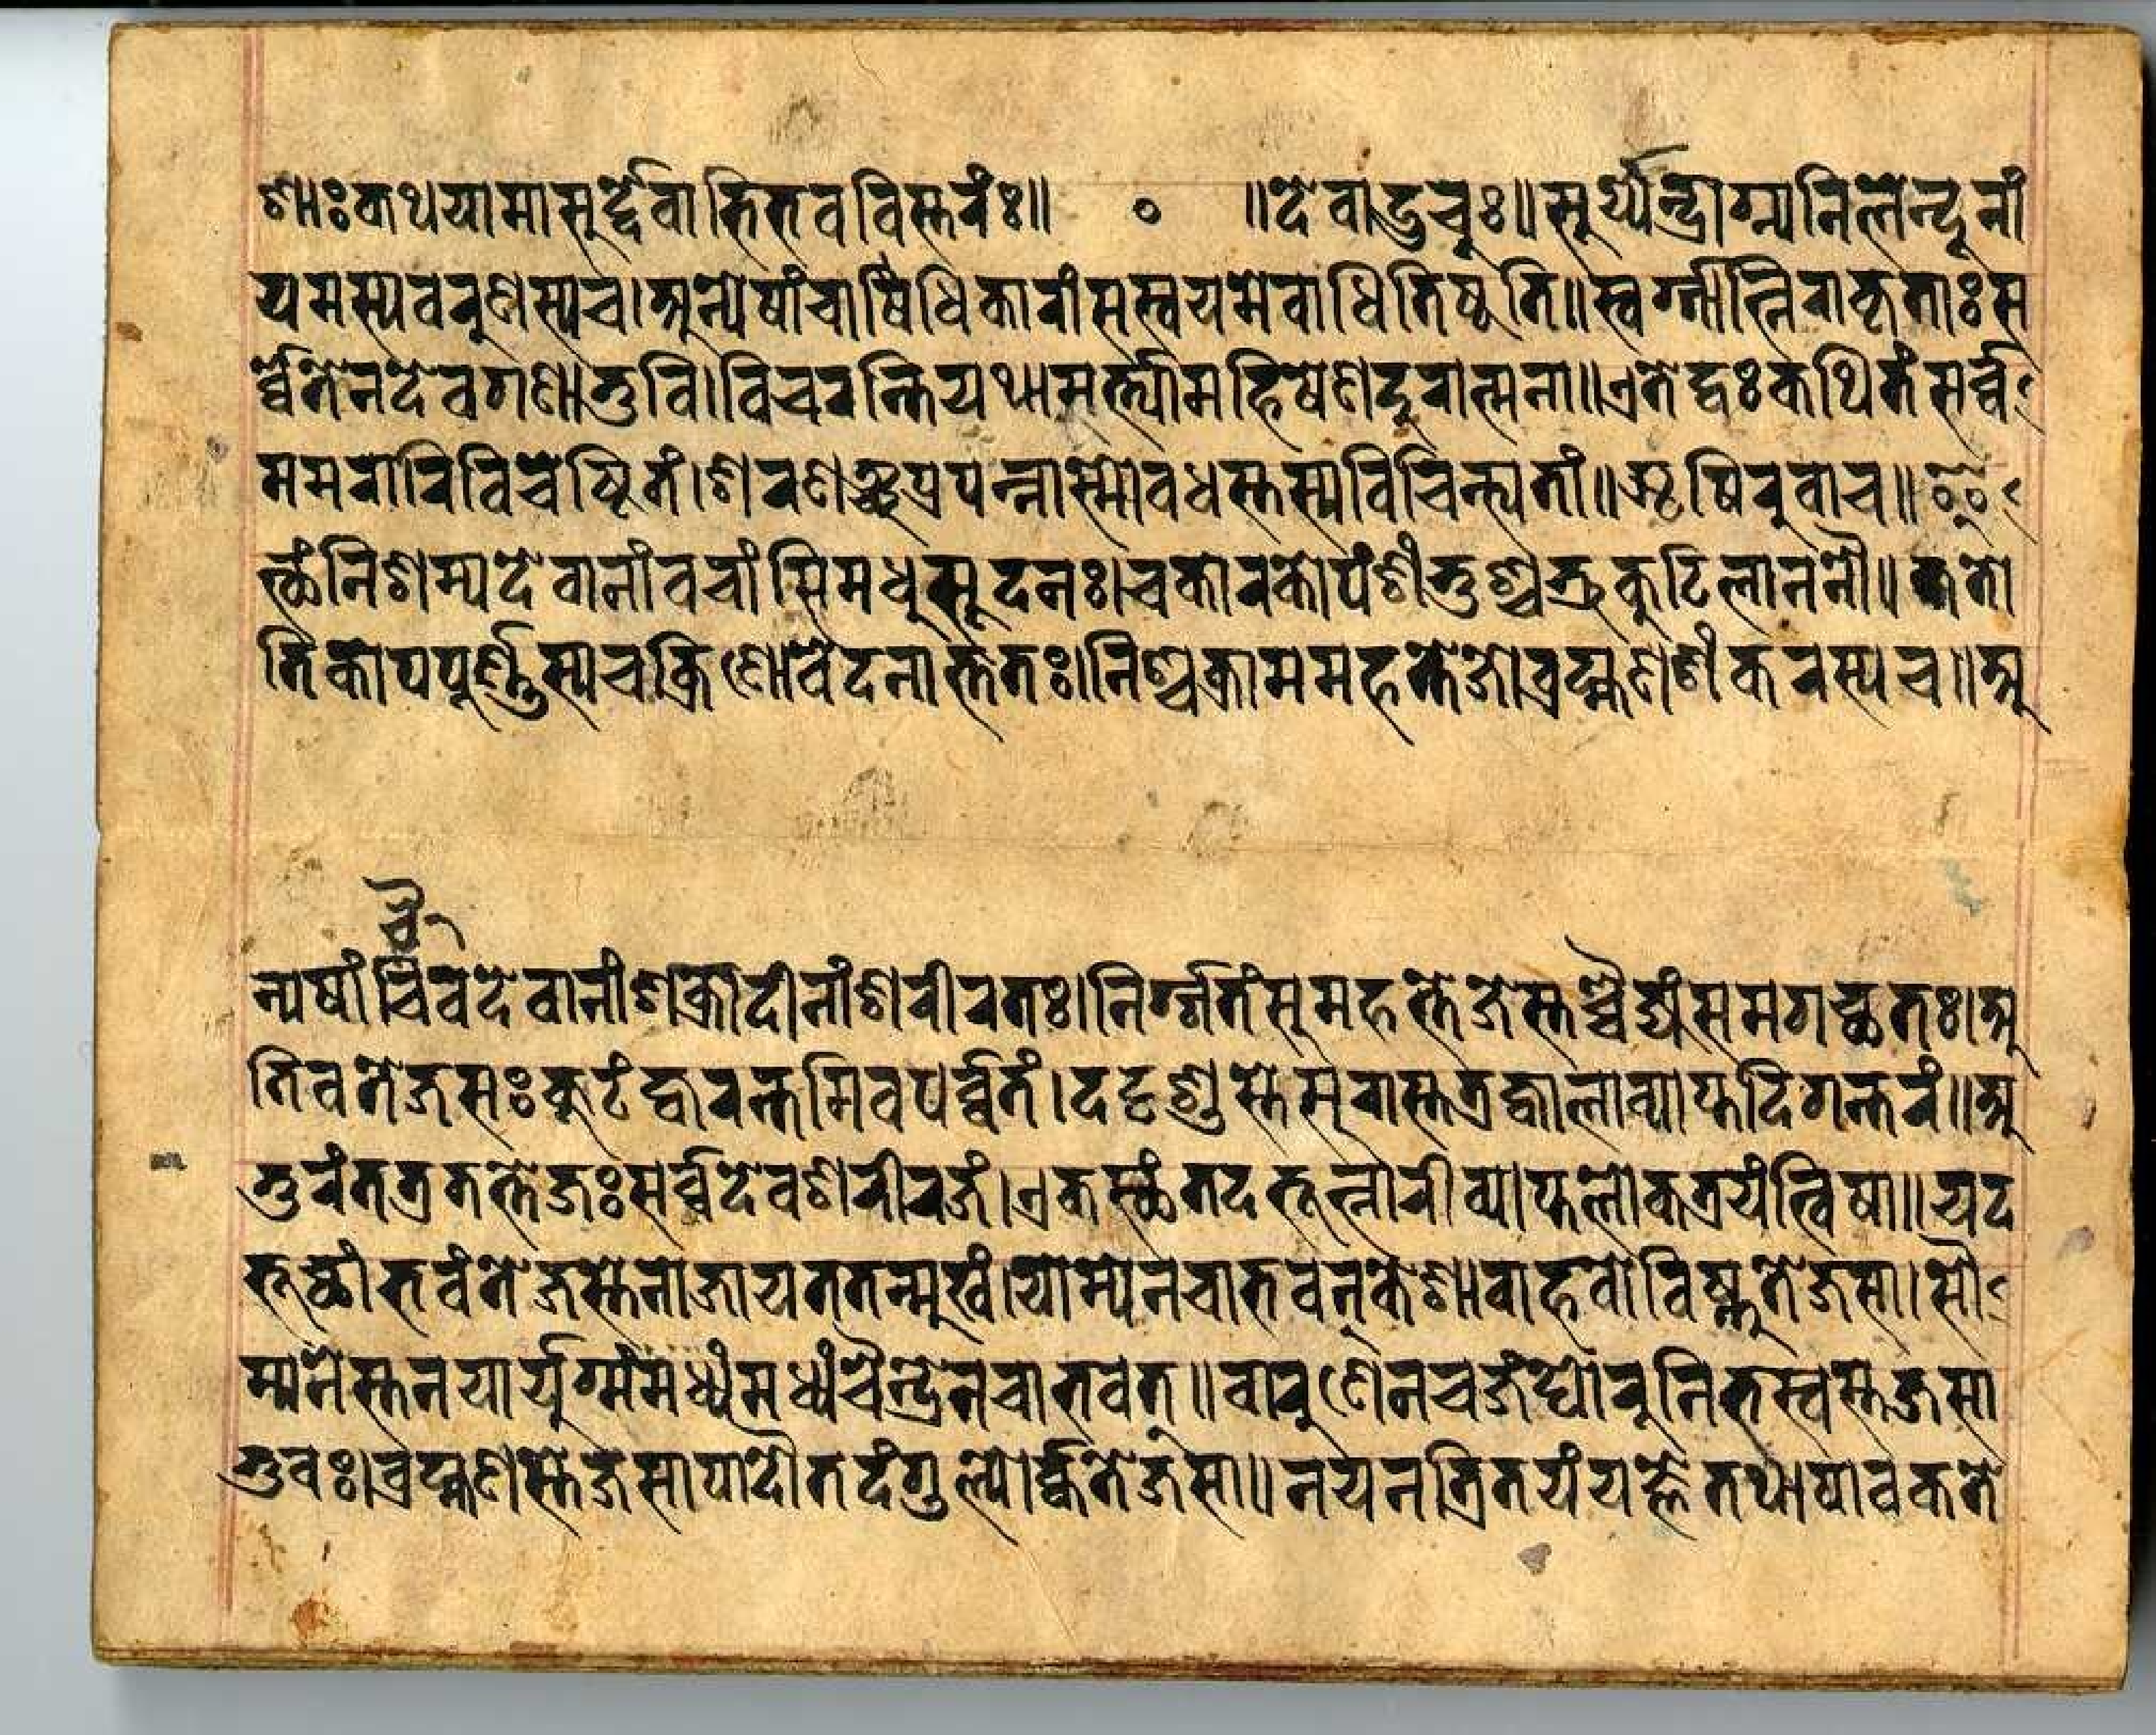 शाः कथयामासूर्द्देवाभिभवविस्तरंः॥ ० ॥देवाउचुः॥सूर्य्येन्द्राग्न्यनिलेन्दूनां
यमस्यवरुणस्यच।अन्येषांचाधिकारांसस्वयमेवाधितिष्ठति॥स्वर्ग्गान्निराकृताःस
र्व्वेतेनदेवगणाभुवि।विचरन्तियथामर्त्त्यामहिषेणदुरात्मना॥एतेद्वःकथितंसर्व्व
ममरारिविचेष्टितं।शरणञ्चप्रपन्नास्मोवधस्तस्यविचिन्त्यतां॥ऋषिरुवाच॥इ
त्थंनिशम्यदेवानांवचांसिमधुसूदनः।चकारकोपंशंभुश्चभ्रुकुटिलाननौ॥ततो
तिकोपपूर्ण्णस्यचक्रिणोवदनात्ततः।निश्चक्राममहत्तेजोब्रह्मणशंकरस्यच॥अ
चै
न्यषांचैवदेवानांशक्रादीनांशरीरतः।निर्ग्गतंसुमहत्तेजस्तच्चैक्यंसमगच्छतः।अ
तिवतेजसःकूटंज्वरन्तमिवपर्व्वतं।ददृशुस्तेसुरास्तत्रज्वालाव्याप्तदिगन्तरं॥अ
तुरंतत्रतत्तेजःसर्व्वदेवशरीरजं।एकस्थंतदभून्नारीव्याप्तलोकत्रयंत्विषा॥यद
भूच्छांभवंतेजस्तेनाजायततन्मुखं।याम्येनचाभवन्केशाबाहवोविष्णुतेजसा।सौ
म्यनेस्तनयोर्युग्मंमध्यंमध्यंचैन्द्रेनचाभवत्॥वारुणेनचजंघोरुनितम्वस्तजसा
भुवः।ब्रह्मणस्तेजसापादौतदंगुल्योर्क्कतेजसा॥नयनत्रितयंयज्ञेतथापावकते